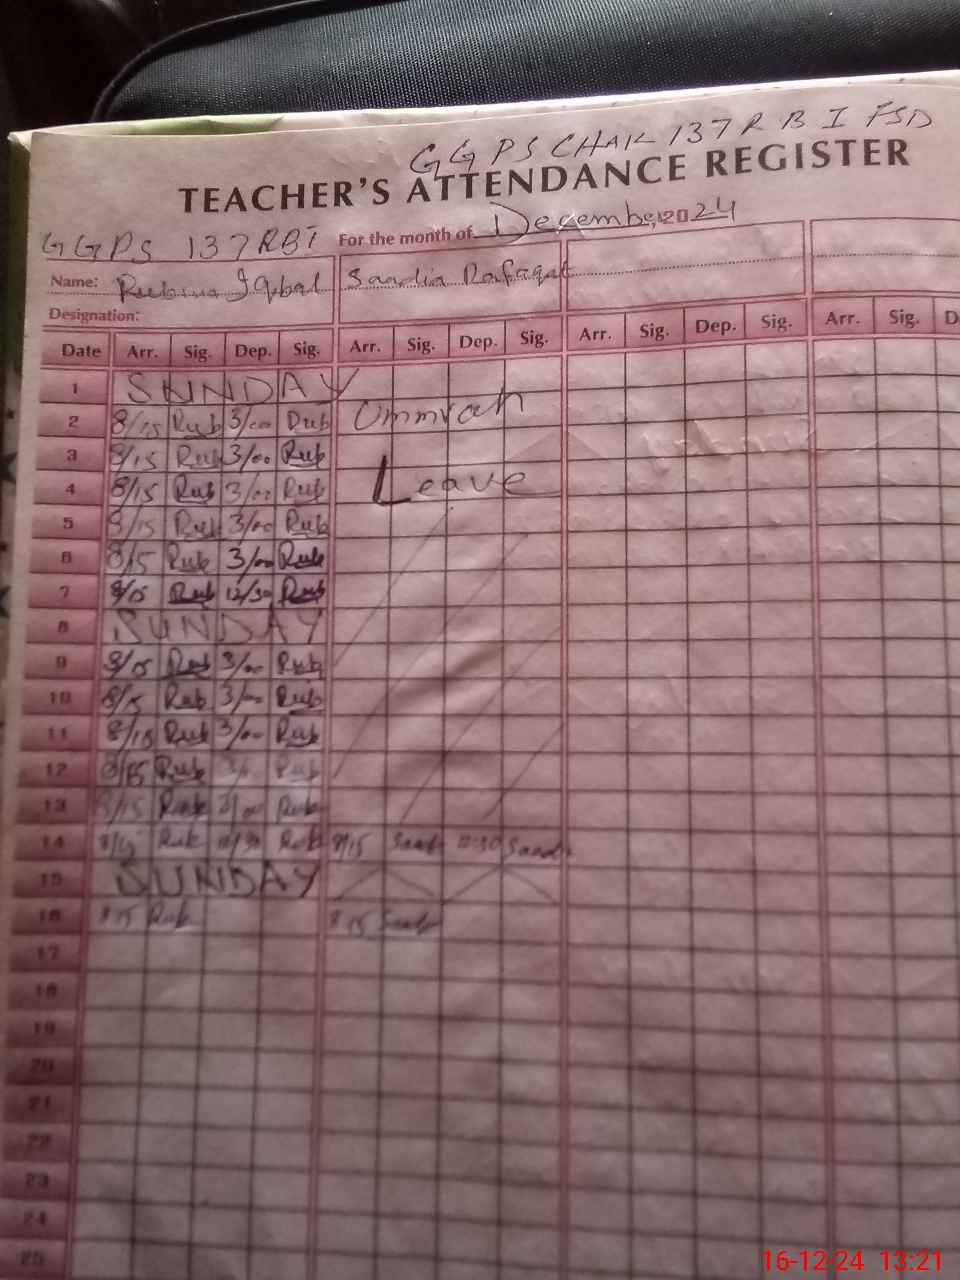 GGPS CHAK 137 R B I FSD
TEACHER'S ATTENDANCE REGISTER
GGPS 137RBI For the month of December, 2024
Name: Rubina Iqbal Saadia Rafaqat
Designation:
Date Arr. Sig. Dep. Sig. Arr. Sig. Dep. Sig. Arr. Sig. Dep. Sig. Arr. Sig. D
1 SUNDAY
2 8/15 Rub 3/00 Rub Ummrah
3 8/15 Rub 3/00 Rub
4 8/15 Rub 3/00 Rub Leave
5 8/15 Rub 3/00 Rub
6 8/15 Rub 3/00 Rub
7 8/15 Rub 12/30 Rub
8 SUNDAY
9 8/15 Rub 3/00 Rub
10 8/15 Rub 3/00 Rub
11 8/15 Rub 3/00 Rub
12 8/15 Rub Rub
13 8/15 Rub 3/00 Rub
14 8/15 Rub 12/30 Rub 8/15 Saad 12:30 Saad
15 SUNDAY
16 8 15 Rub 8 15 Saad
17
18
19
20
21
22
23
24
25
16-12-24 13:21